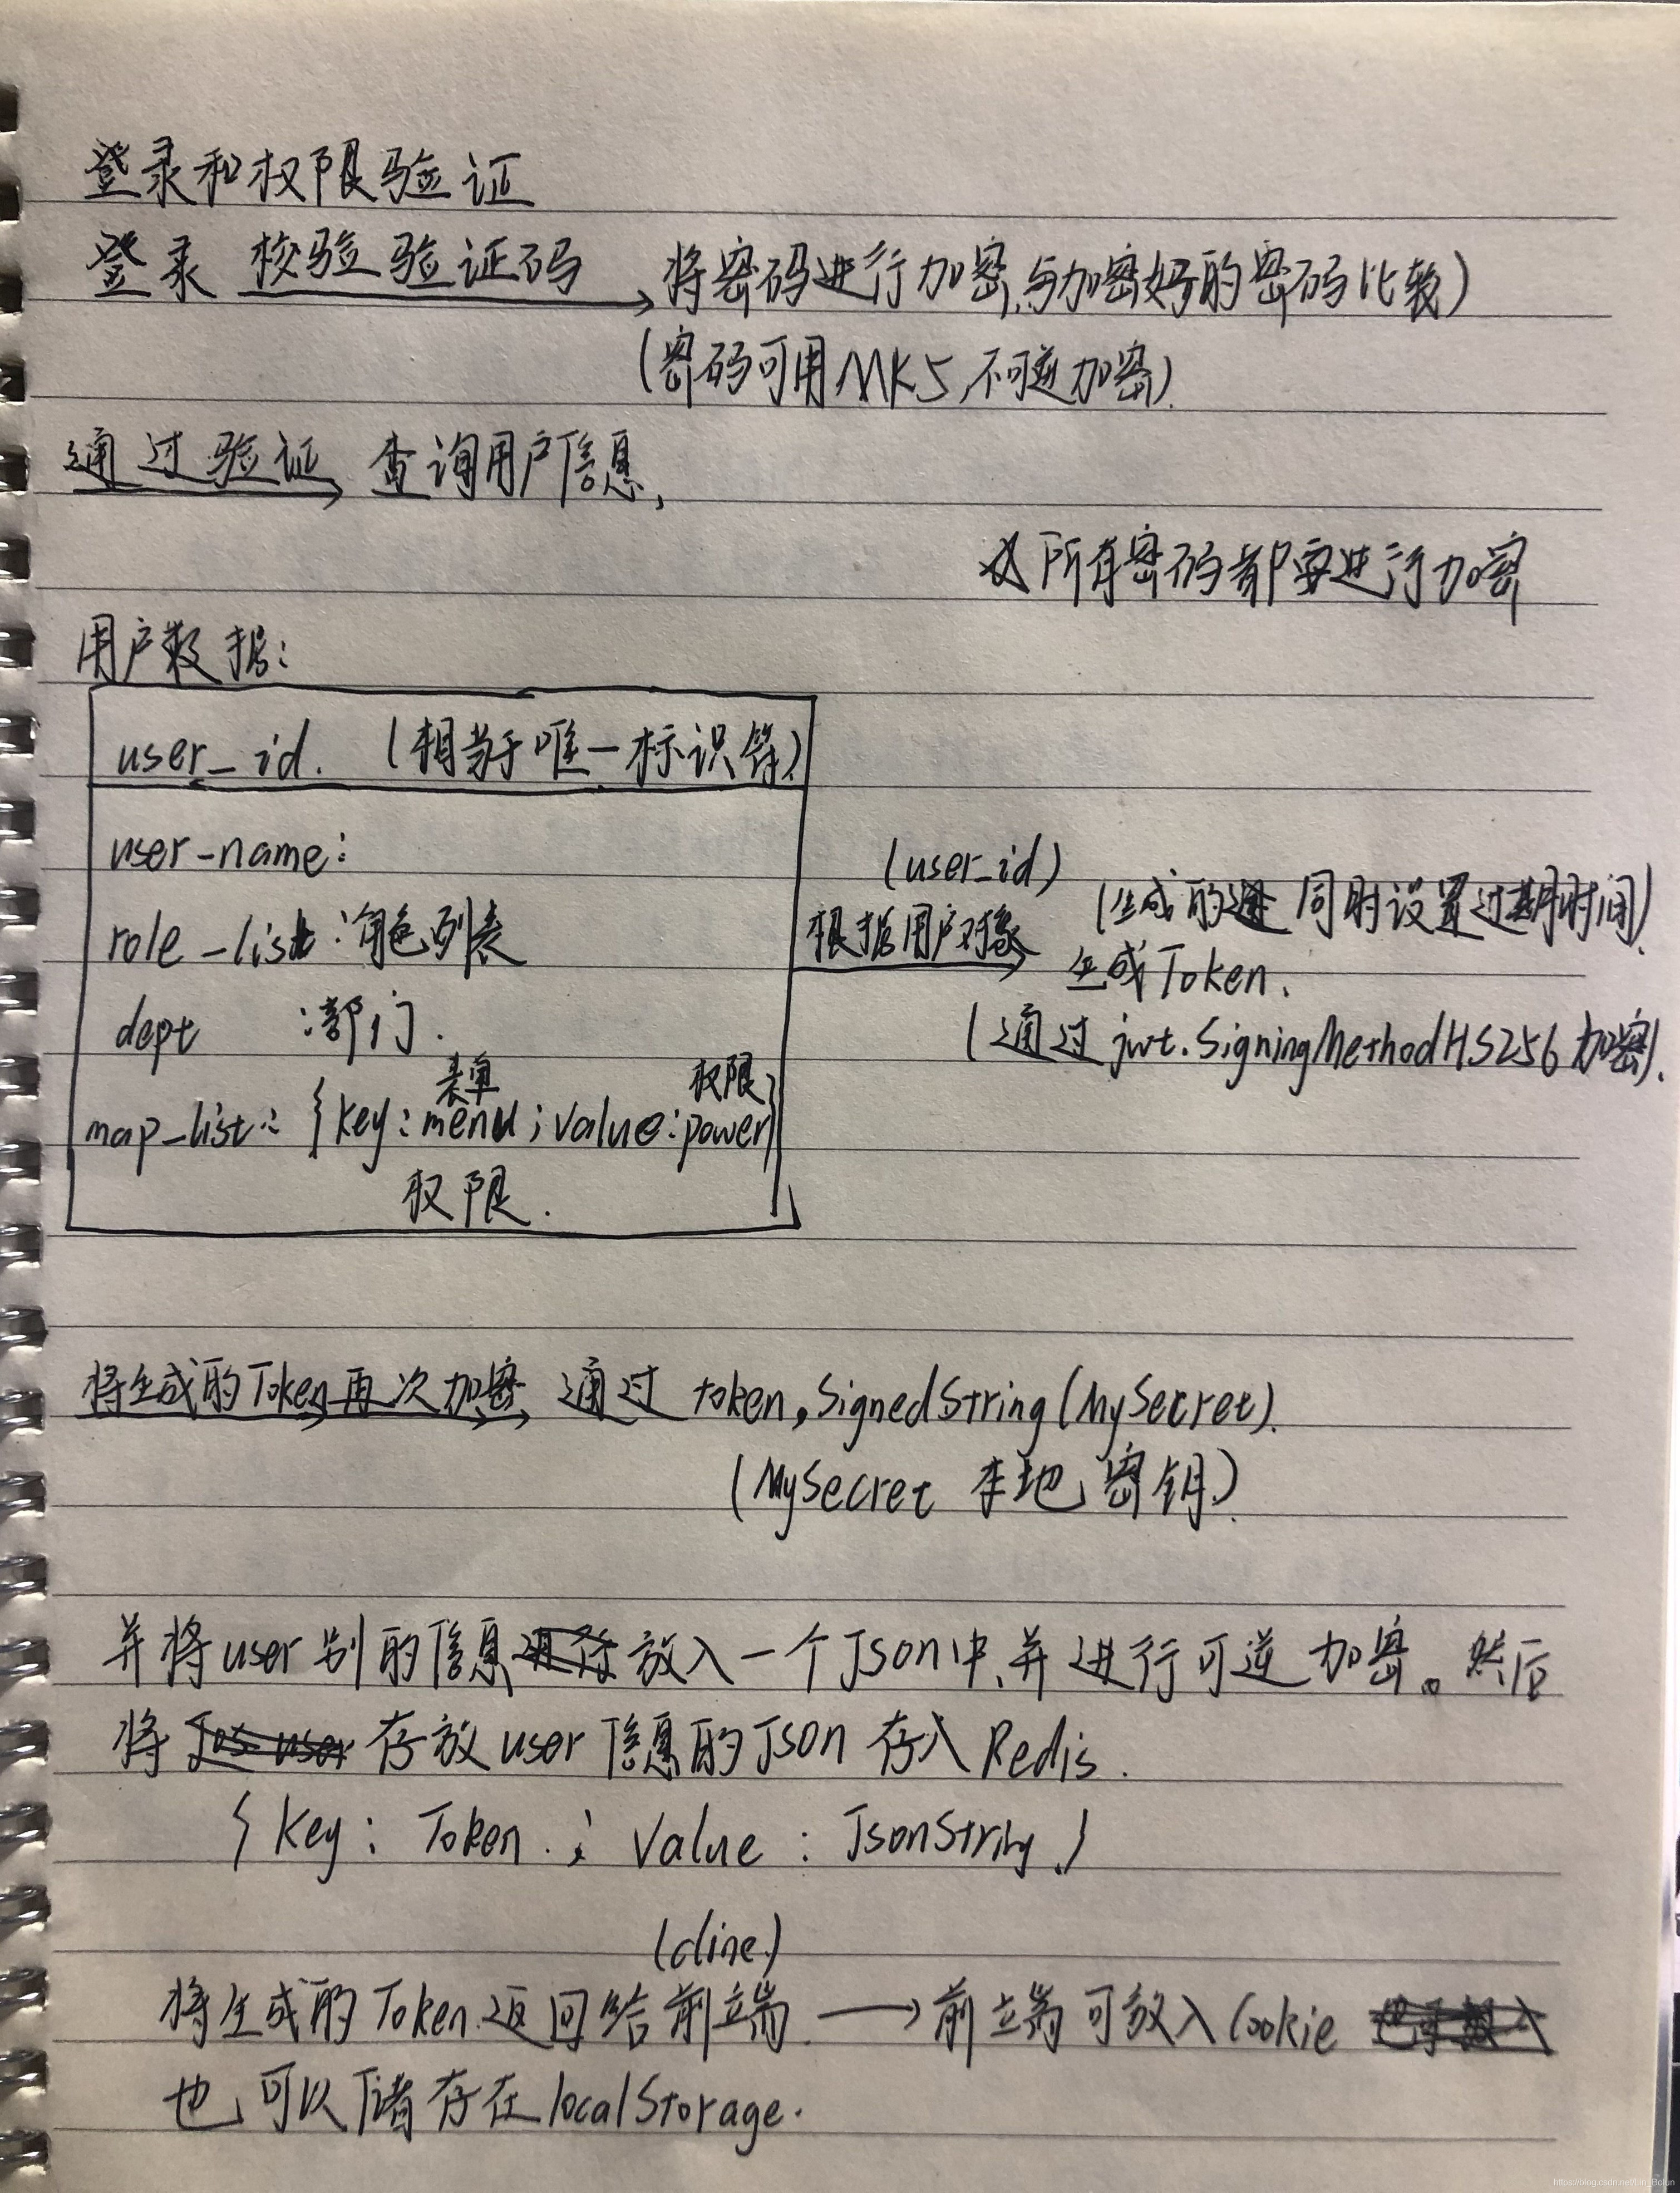 登录和权限验证
登录 校验验证码 将密码进行加密,与加密好的密码比较)
(密码可用MK5,不可逆加密).
通过验证 查询用户信息,
所有密码都要进行加密
用户数据:
user_id. (相当于唯一标识符)
user-name:
role-list:角色列表
dept :部门.
表单 权限
map_list: {key:menu;value:power}
权限.
(user_id)
根据用户对象
(生成的 同时设置过期时间)
生成Token.
(通过jwt.SigningMethodHS256加密).
将生成的Token再次加密 通过 token.SignedString(MySecret).
(MySecret 本地密钥).
并将user别的信息放入一个Json中,并进行可逆加密。然后
将 存放user信息的Json存入Redis.
{Key: Token.; Value: JsonString.}
(cline)
将生成的Token返回给前端. → 前端可放入Cookie
也可以储存在localStorage.
https://blog.csdn.net/Lin_Bolun